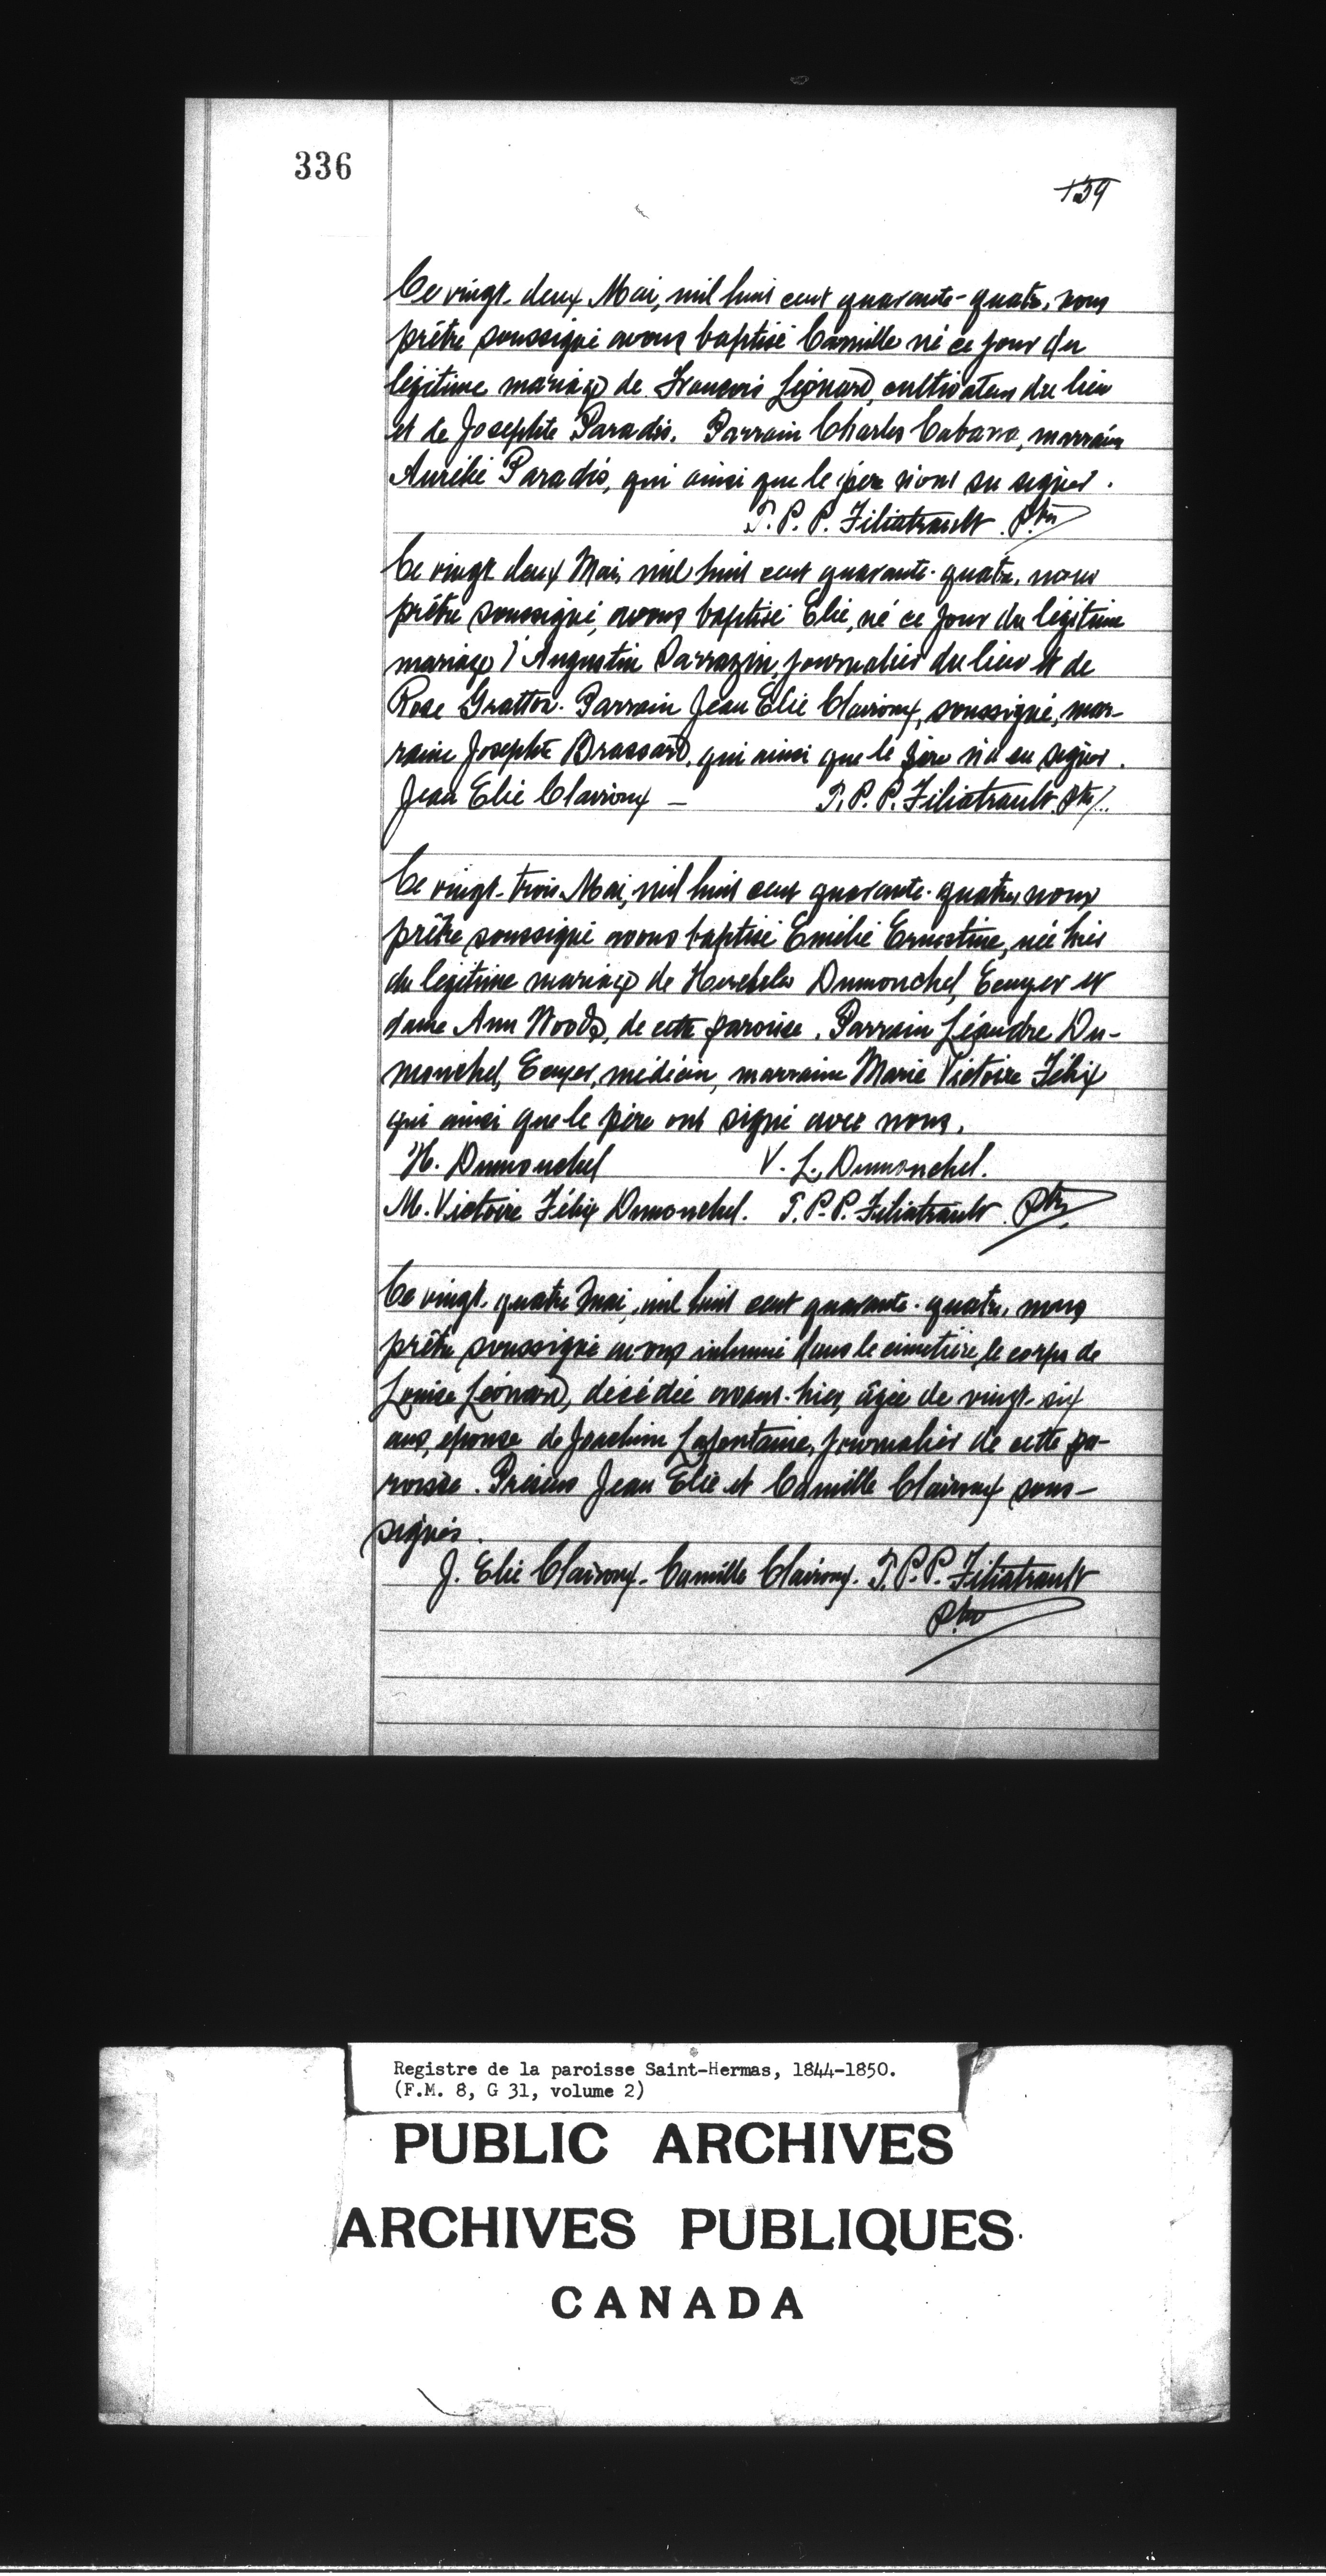 336
139
Ce vingt-deux Mai, mil huit cent quarante-quatre, nous
prêtre soussigné avons baptisé Camille né ce jour du
légitime mariage de François Léonard, cultivateur du lieu
et de Josephte Paradis. Parrain Charles Cabana, marraine
Aurélie Paradis, qui ainsi que le père n'ont su signer.
T. P. P. Filiatrault. Ptre
Ce vingt deux Mai, mil huit cent quarante-quatre, nous
prêtre soussigné, avons baptisé Elie, né ce jour du légitime
mariage d'Augustin Sarrazin, journalier du lieu et de
Rose Gratton. Parrain Jean Elie Clairoux, soussigné, mar-
raine Josephte Brassard, qui ainsi que le père n'a su signer.
Jean Elie Clairoux — T. P. P. Filiatrault. Ptre
Ce vingt-trois Mai, mil huit cent quarante-quatre, nous
prêtre soussigné avons baptisé Emélie Ernestine, née hier
du légitime mariage de Dumouchel, Ecuyer et
dame Ann Woods, de cette paroisse. Parrain Léandre Du-
mouchel, Ecuyer, médecin, marraine Marie Victoire Félix
qui ainsi que le père ont signé avec nous.
H. Dumouchel V. L. Dumouchel.
M. Victoire Félix Dumouchel. T. P. P. Filiatrault. Ptre
Ce vingt-quatre Mai, mil huit cent quarante-quatre, nous
prêtre soussigné avons inhumé dans le cimetière, le corps de
Louise Léonard, décédée avant-hier, âgée de vingt-six
ans, épouse de Joachim Lafontaine, journalier de cette pa-
roisse. Présens Jean Elie et Camille Clairoux sous-
signés.
J. Elie Clairoux. Camille Clairoux. T. P. P. Filiatrault
Ptre
Registre de la paroisse Saint-Hermas, 1844-1850.
(F.M. 8, G 31, volume 2)
PUBLIC ARCHIVES
ARCHIVES PUBLIQUES
CANADA